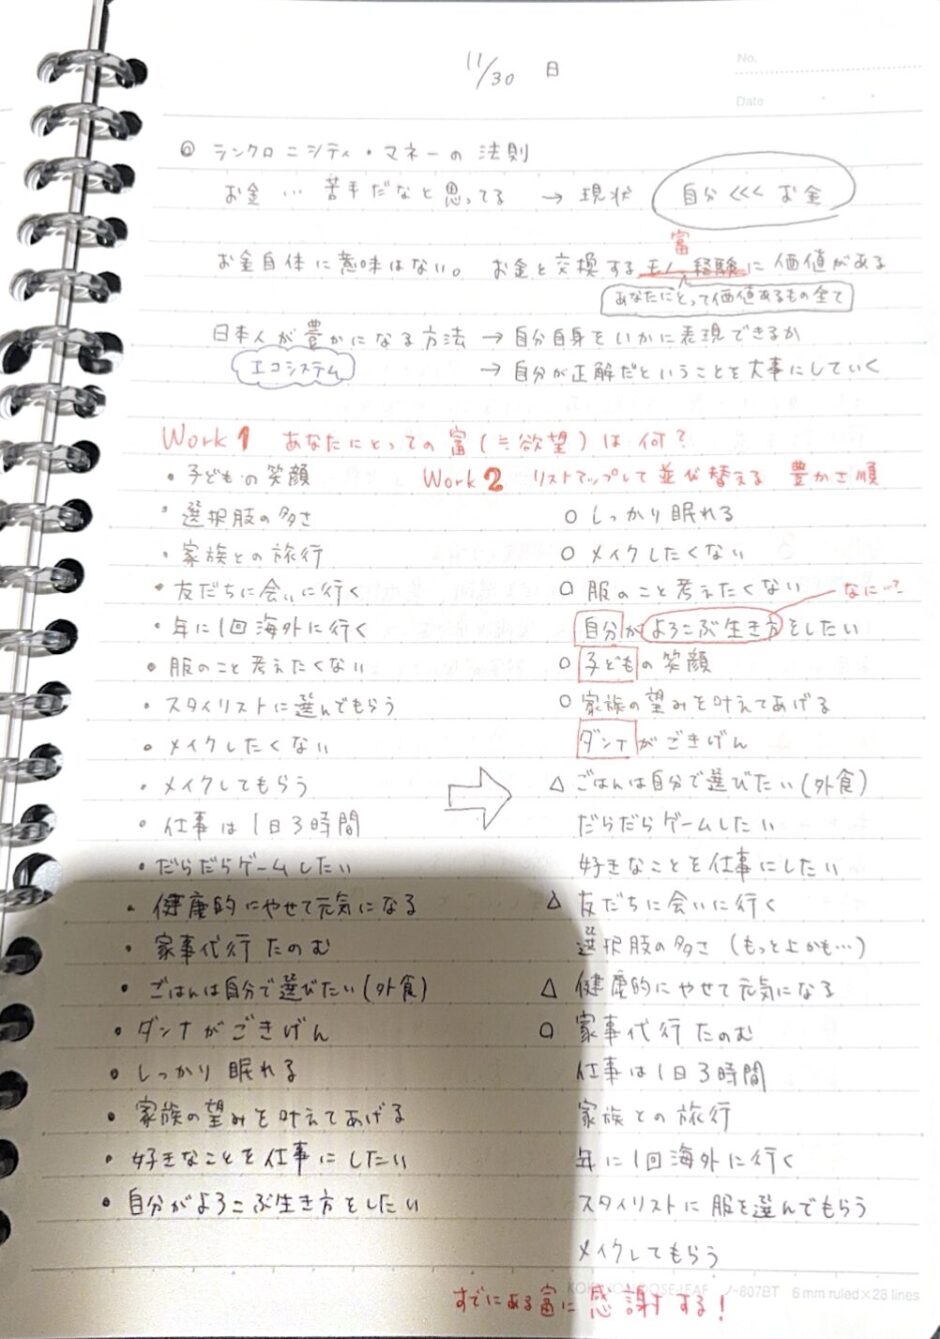 No.
Date
11/30 日
◎ ランクロニシティ・マネーの法則
お金 … 苦手だなと思ってる → 現状 自分 <<< お金
富
お金自体に意味はない。 お金と交換する モノ 経験に価値がある
あなたにとって価値あるもの全て
日本人が豊かになる方法 → 自分自身をいかに表現できるか
エコシステム → 自分が正解だということを大事にしていく
Work1 あなたにとっての富(≒欲望)は何?
・子どもの笑顔
・選択肢の多さ
・家族との旅行
・友だちに会いに行く
・年に1回海外に行く
・服のこと考えたくない
・スタイリストに選んでもらう
・メイクしたくない
・メイクしてもらう
・仕事は1日3時間
・だらだらゲームしたい
・健康的にやせて元気になる
・家事代行たのむ
・ごはんは自分で選びたい(外食)
・ダンナがごきげん
・しっかり眠れる
・家族の望みを叶えてあげる
・好きなことを仕事にしたい
・自分がよろこぶ生き方をしたい
Work2 リストアップして並び替える 豊かさ順
○ しっかり眠れる
○ メイクしたくない
○ 服のこと考えたくない
なに…?
自分がよろこぶ生き方をしたい
○ 子どもの笑顔
○ 家族の望みを叶えてあげる
ダンナがごきげん
△ ごはんは自分で選びたい(外食)
だらだらゲームしたい
好きなことを仕事にしたい
△ 友だちに会いに行く
選択肢の多さ (もっと上かも…)
△ 健康的にやせて元気になる
○ 家事代行たのむ
仕事は1日3時間
家族との旅行
年に1回海外に行く
スタイリストに服を選んでもらう
メイクしてもらう
すでにある富に感謝する!
LOOSELEAF ノ-807BT 6mm ruled×28 lines